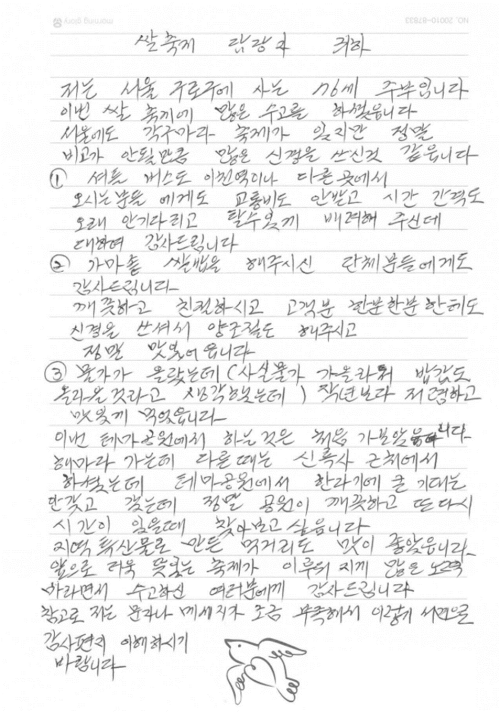 morning glory
NO. 20010-87833
쌀축제 담당자 귀하
저는 서울 구로구에 사는 76세 주부입니다
이번 쌀 축제에 많은 수고를 하셨읍니다
서울에도 각구마다 축제가 있지만 정말
비교가 안될만큼 많은 신경을 쓰신것 같읍니다
① 셔틀 버스도 이천역이나 다른 곳에서
오시는분들 에게도 교통비도 안받고 시간 간격도
오래 안기다리고 탈수있게 배려해 주신데
대하여 감사드립니다
② 가마솥 쌀밥을 해주시신 단체분들에게도
감사드립니다
깨끗하고 친절하시고 고객분 한분한분한테도
신경을 쓰셔서 양조절도 해주시고
정말 맛있어읍니다
③ 물가가 올랐는데 (사실물가 가올라서 밥값도
올라을것라고 생각했는데) 작년보다 저렴하고
맛있게 먹었읍니다
이번 테마공원에서 하는것은 처음 가보았읍니다
해마라 가는데 다른때는 신륵사 근처에서
하셨는데 테마공원에서 한다기에 큰 기대는
안갖고 갔는데 정말 공원이 깨끗하고 또 다시
시간이 있을때 찾아보고 싶읍니다
지역 특산물로 만든 먹거리도 맛이 좋았읍니다
앞으로 더욱 뜻있는 축제가 이루어 지게 많은 노력
바라면서 수고하신 여러분에게 감사드립니다
참고로 저는 문자나 메세지가 조금 부족해서 이렇게 서면으로
감사편지 이해하시기
바랍니다